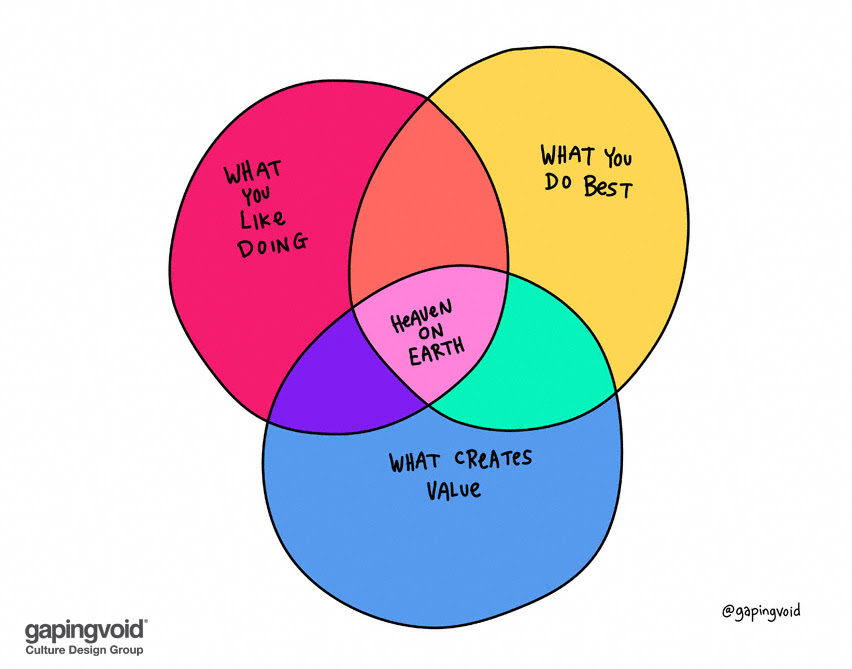 WHAT
YOU
LIKe
DOING
WHAT YOU
DO BeST
HeAVeN
ON
EARTH
WHAT CReATeS
VALUe
@gapingvoid
gapingvoid®
Culture Design Group